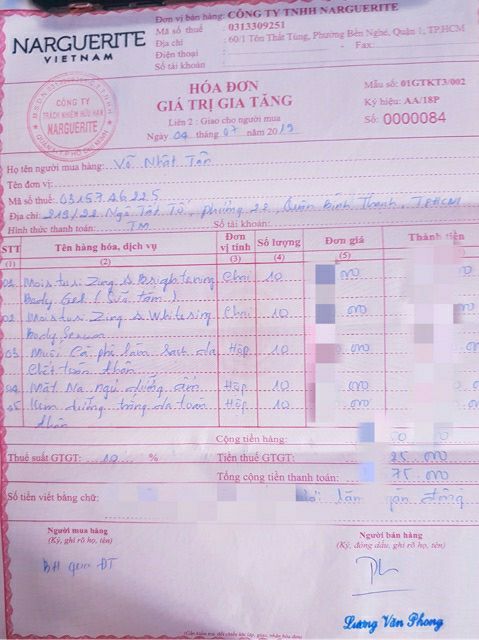 NARGUERITE
VIETNAM
Đơn vị bán hàng: CÔNG TY TNHH NARGUERITE
Mã số thuế : 0313309251
Địa chỉ : 60/1 Tôn Thất Tùng, Phường Bến Nghé, Quận 1, TP.HCM
Điện thoại : - Fax:
Số tài khoản :
CÔNG TY
TRÁCH NHIỆM HỮU HẠN
NARGUERITE
HÓA ĐƠN
GIÁ TRỊ GIA TĂNG
Liên 2 : Giao cho người mua
Ngày 04 tháng 07 năm 2019
Mẫu số: 01GTKT3/002
Ký hiệu: AA/18P
Số: 0000084
Họ tên người mua hàng: Võ Nhật Tân
Tên đơn vị:
Mã số thuế: 0315726225
Địa chỉ: 219/22 Ngô Tất Tố, phường 22, Quận Bình Thạnh, TPHCM
Hình thức thanh toán: TM Số tài khoản:
STT Tên hàng hóa, dịch vụ Đơn vị tính Số lượng Đơn giá Thành tiền
(1) (2) (3) (4) (5)
01 Moisturi Zing & Brightening Chai 10 000
Body Gel (Sữa Tắm)
02 Moisturi Zing & Whitening Chai 10 000
Body Serum
03 Muối Cà phê làm sạch da Hộp 10
Chết toàn thân
04 Mặt Nạ ngủ dưỡng ẩm Hộp 10
05 Kem dưỡng trắng da toàn Hộp 10
thân
Cộng tiền hàng:
Thuế suất GTGT: 10 % Tiền thuế GTGT: 25.000
Tổng cộng tiền thanh toán: 75.000
Số tiền viết bằng chữ: lăm ngàn đồng
Người mua hàng
(Ký, ghi rõ họ, tên)
BH qua ĐT
Người bán hàng
(Ký, đóng dấu, ghi rõ họ, tên)
Lương Văn Phong
(Cần kiểm tra, đối chiếu khi lập, giao, nhận hóa đơn)